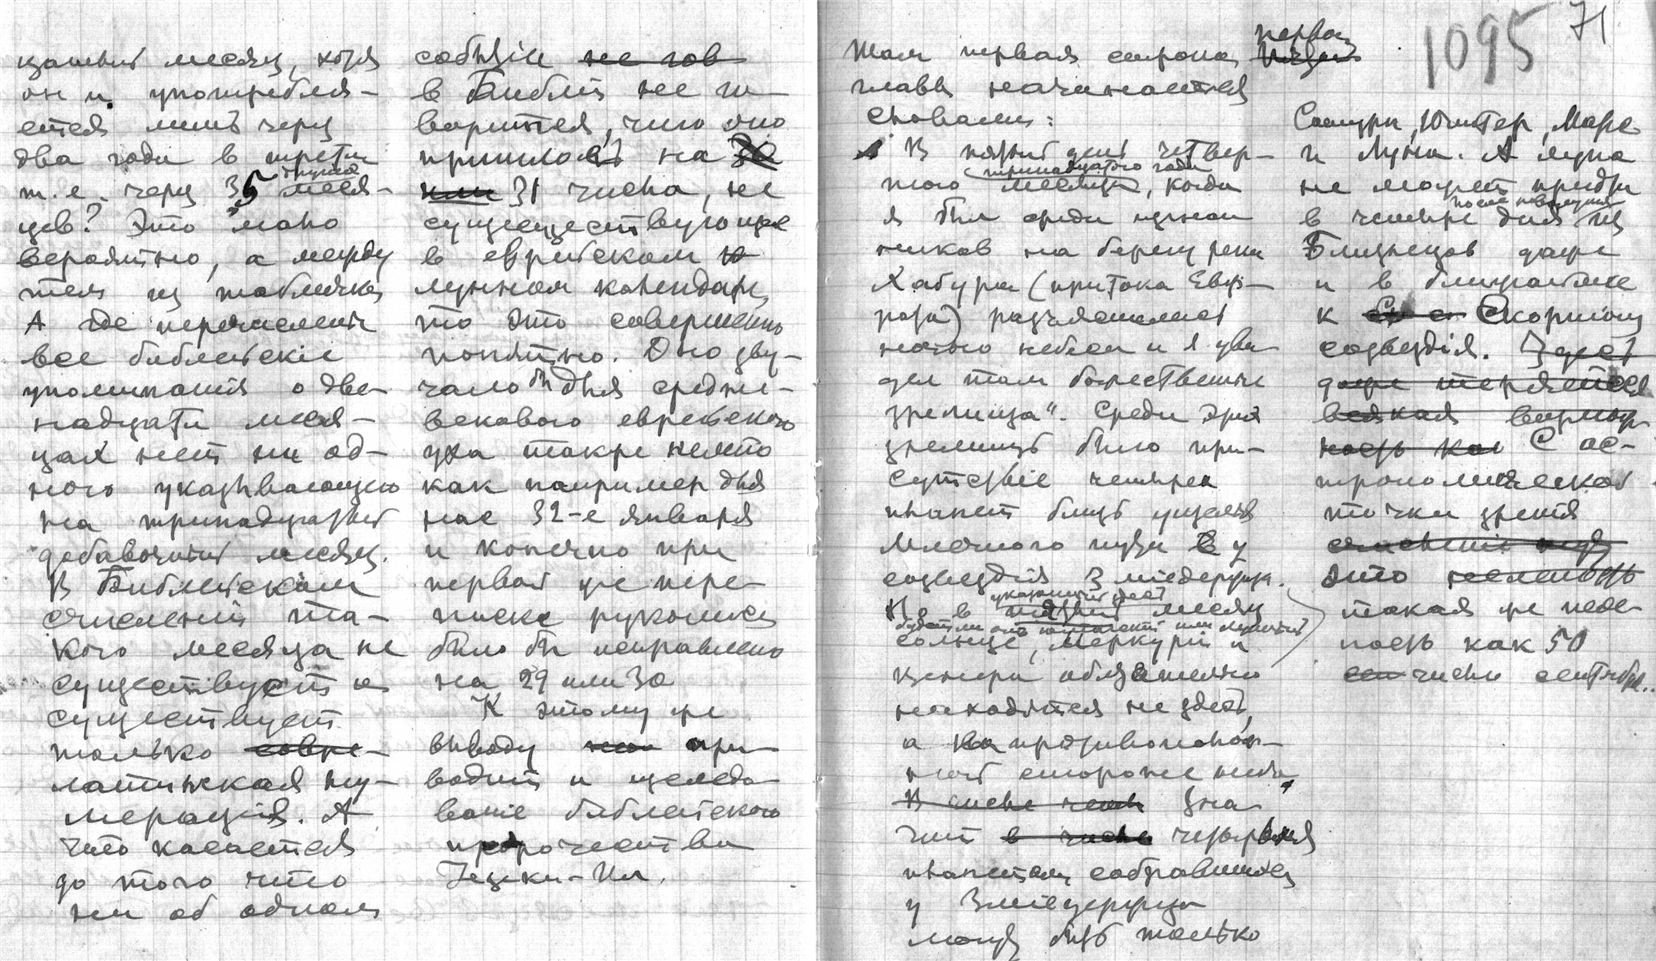 цатый месяц, хотя
он и употребля-
ется лишь через
два года в третий
т.е. через 35 лунных меся-
цев? Это мало
вероятно, а между
тем из таблички
А где перечислены
все библейскіе
упоминанія о две-
надцати меся-
цах нет ни од-
ного указывающего
на тринадцатый
добавочный месяц.
В Библейском
счислении та-
кого месяца не
существует и
существует
только совре-
латинская ну-
мерація. А
что касается
до того что
ни об одном
событіи не гов
в Библіи не го-
ворится, что оно
пришлось на 30
или 31 числа, не
существующее
в еврейском
лунном календаре,
то это совершенно
понятно. Оно зву-
чало бы для средне-
векового еврейского
уха также нелепо
как например для
нас 32-е января
и конечно при
первой же пере-
писке рукописи
было бы исправлено
на 29 или 30
К этому же
выводу при-
водит и изследо-
ваніе библейского
пророчества
Іезеки-Ил.
1095 71
Там первая строка первой
главы начинается
словами:
В пятый день четвер-
того месяца тринадцатого года, когда
я был среди изгнан
ников на берегу реки
Хабура (притока Евф-
рата) разъяснилось
ночное небо и я уви
дел там божественные
зрелища". Среди этих
зрелищ было при-
сутствіе четырех
планет близ ущелья
Млечного пути у
созвездія Змиедержца.
Но в пятый месяц
солнце, Меркурій и
Венера обязательно
находятся не здесь,
а на противополож-
ной стороне неба,
Зна-
чит в числе четырьмя
планетами собравшимися
у Змиедержца
могут быть только
Сатурн, Юпитер, Марс
и Луна. А луна
не может придти
в четыре дня после новолуния из
Близнецов даже
и в ближайшие
к Скорпиону
созвездія. Здесь
даже теряется
всякая вероят
ность как С ас-
трономической
точки зренія
это нелепость
такая же неле-
пость как 50
число сентября..